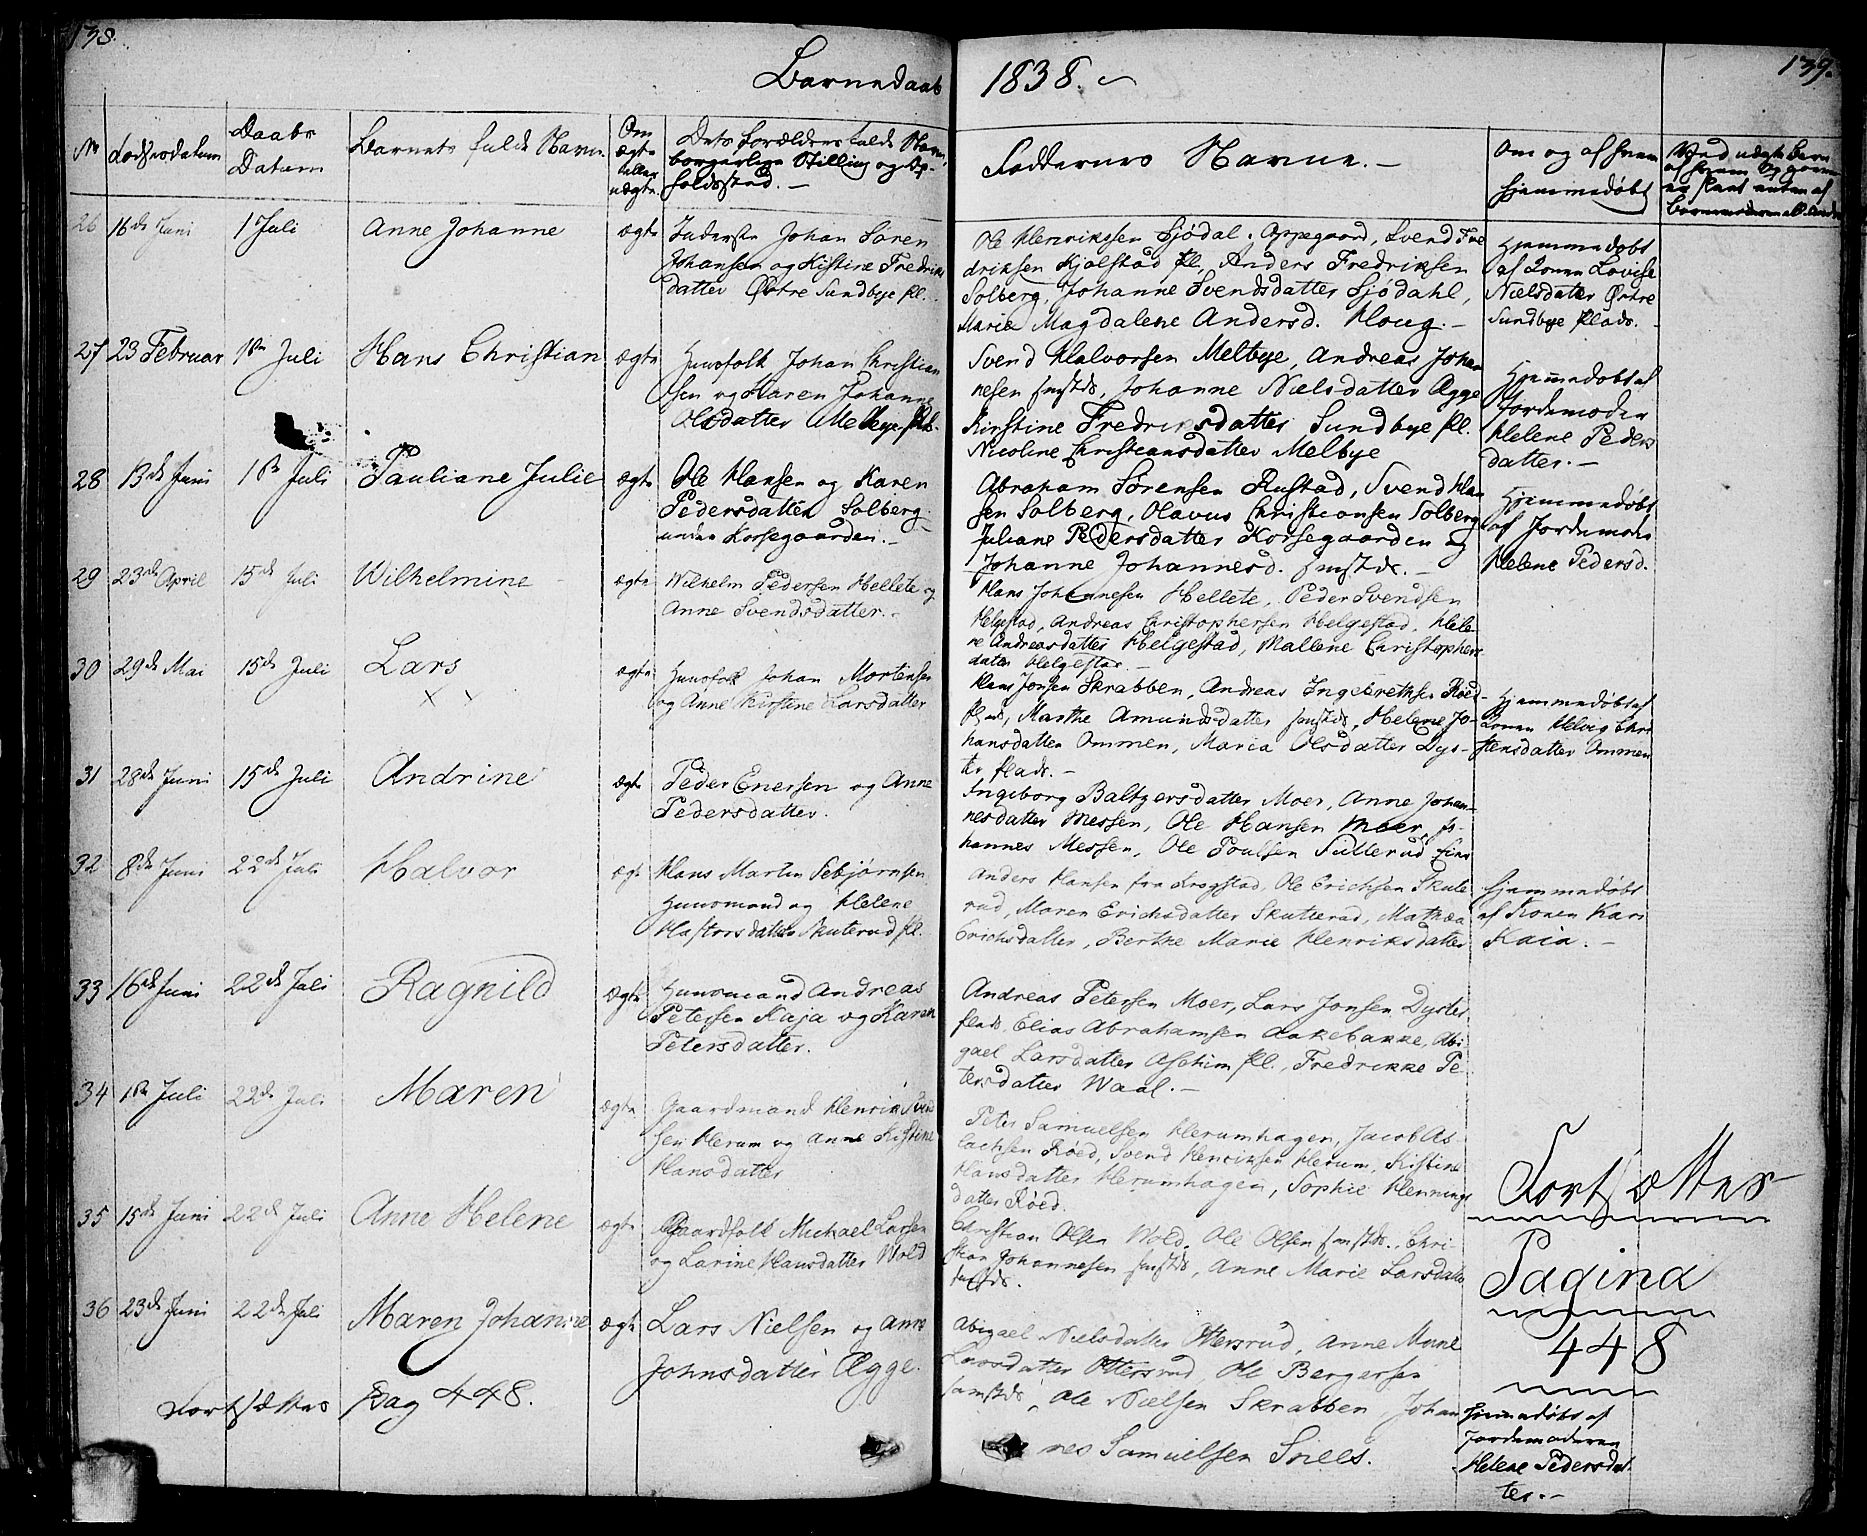 138.
Barnedaab
1838.
139.
No
Fødselsdatum
Daabs
Datum
Barnets fulde Navn.
Om
ægte
eller
uægte.
Dets Forældres fulde Navn,
borgerlige Stilling og Op-
holdssted. —
Faddernes Navne. —
Om og af hvem
hjemmedøbt
26
16de Juni
1 Juli
Anne Johanne
ægte
Inderste Johan Sören
Johansen og Kistine Fredriks
datter Östre Sundbye Pl.
Ole Henriksen Sjödal, Oppegaard, Svend Fre
driksen Kjolstad Pl, Anders Fredriksen
Solberg, Johanne Svendsdatter Sjödahl,
Marie Magdalene Andersd. Houg. —
Hjemmedøbt
af Konen Lovise
Nielsdatter Östre
Sundbye Plads. —
27
23 Februar
1ste Juli
Hans Christian
ægte
Huusfolk Johan Christian
sen og Karen Johanne
Olsdatter Melbye Pl.
Svend Halvorsen Melbye, Andreas Johan
nesen smstds, Johanne Nielsdatter Ægge
Kirstine Fredriksdatter Sundbye Pl.
Nicoline Christiansdatter Melbye
Hjemmedøbt af
Jordemoder
Helene Peders
datter. —
28
13de Juni
1ste Juli
Pauliane Julie
ægte
Ole Hansen og Karen
Pedersdatter Solberg
under Korsegaarden. —
Abraham Sörensen Rustad, Svend Han
sen Solberg, Olavus Christiansen Solberg
Juliane Pedersdatter Korsegaarden og
Johanne Johannesd. smstds. —
Hjemmedøbt
af Jordemoder
Helene Pedersd.
29
23de April
15de Juli
Wilhelmine
ægte
Wilhelm Pedersen Hellete og
Anne Svendsdatter. —
Hans Johannesen Hellete, Peder Svendsen
Helgestad, Andreas Christophersen Helgestad, Hele-
ne Andreasdatter Helgestad, Mallene Christophers
datter Helgestad. —
30
29de Mai
15de Juli
Lars
ægte
Huusfolk Johan Mortensen
og Anne Kirstine Larsdatter
Hans Jonsen Skrabben, Andreas Ingebrethsen Röed-
Plads, Marthe Amundsdatter smstds, Helene Jo-
hansdatter Ommen, Maria Olsdatter Dys-
ter Plads. —
Hjemmedøbt af
Konen Helvig Chri
stensdatter Ommen
31
28de Juni
15de Juli
Andrine
ægte
Peder Enersen og Anne
Pedersdatter.
Ingeborg Baltzersdatter Moer, Anne Johan-
nesdatter Messen, Ole Hansen Moer, Jo-
hannes Messen, Ole Poulsen Sutterud Eier
32
8de Juni
22de Juli
Halvor
ægte
Hans Martin Sebjørnsen
Huusmand og Helene
Haftorsdatter Skuterud Pl.
Anders Hansen fra Krogstad, Ole Erichsen Skute
rud, Maren Erichsdatter Skutterud, Mathea
Erichsdatter, Berthe Marie Henriksdatter
Hjemmedøbt
af Konen Kari
Kaia. —
33
16de Juni
22de Juli
Ragnild
ægte
Huusmand Andreas
Petersen Kaja og Karen
Petersdatter.
Andreas Petersen Moer, Lars Jonsen Dyster
Plads, Elias Abrahamsen Aakebakke, Abi
gael Larsdatter Aschim Pl., Fredrikke Pe
tersdatter Waal. —
34
1ste Juli
22de Juli
Maren
ægte
Gaardmand Henrik Svend
sen Herum og Anne Kistine
Hansdatter
Peter Samuelsen Herumhagen, Jacob As-
lachsen Röed, Svend Henriksen Herum, Kistine
Hansdatter Herumhagen, Sophie Hennings
datter Röed.
35
15de Juni
22de Juli
Anne Helene
ægte
Gaardfolk Michael Larsen
og Larine Hansdatter Wold
Christian Olsen Wold, Ole Olsen smstds., Chri-
stian Johannesen smstds, Anne Marie Larsdatter
smstds.
36
23de Juni
22de Juli
Maren Johanne
ægte
Lars Nielsen og Anne
Johnsdatter Ægge.
Abigael Nielsdatter Ottersrud, Anne Marie
Larsdatter Ottersrud, Ole Bergersen
smstds, Ole Nielsen Skrabben, Johan
nes Samuelsen Snees.
Fortsættes
Pagina
448
Hjemmedøbt af
Jordemoderen
Helene Pedersdat
ter. —
Fortsættes Pag 448.